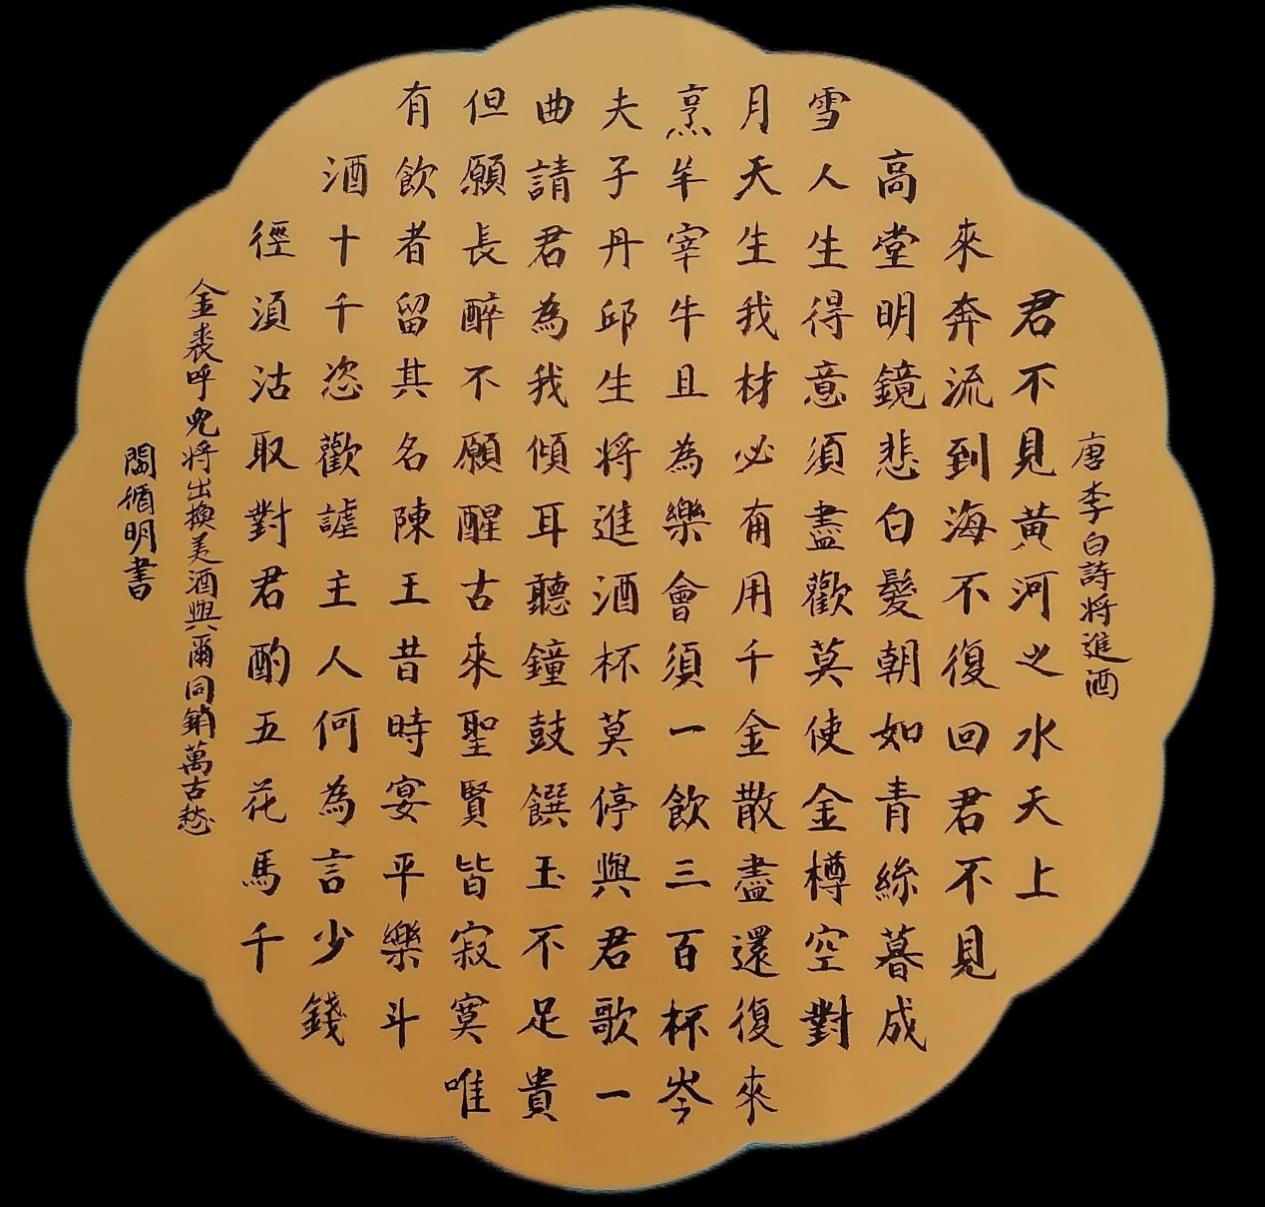 唐李白詩將進酒
君不見黃河之水天上
來奔流到海不復回君不見
高堂明鏡悲白髮朝如青絲暮成
雪人生得意須盡歡莫使金樽空對
月天生我材必有用千金散盡還復來
烹羊宰牛且為樂會須一飲三百杯岑
夫子丹邱生將進酒杯莫停與君歌一
曲請君為我傾耳聽鐘鼓饌玉不足貴
但願長醉不願醒古來聖賢皆寂寞唯
有飲者留其名陳王昔時宴平樂斗
酒十千恣歡謔主人何為言少錢
徑須沽取對君酌五花馬千
金裘呼兒將出換美酒與爾同銷萬古愁
循明書